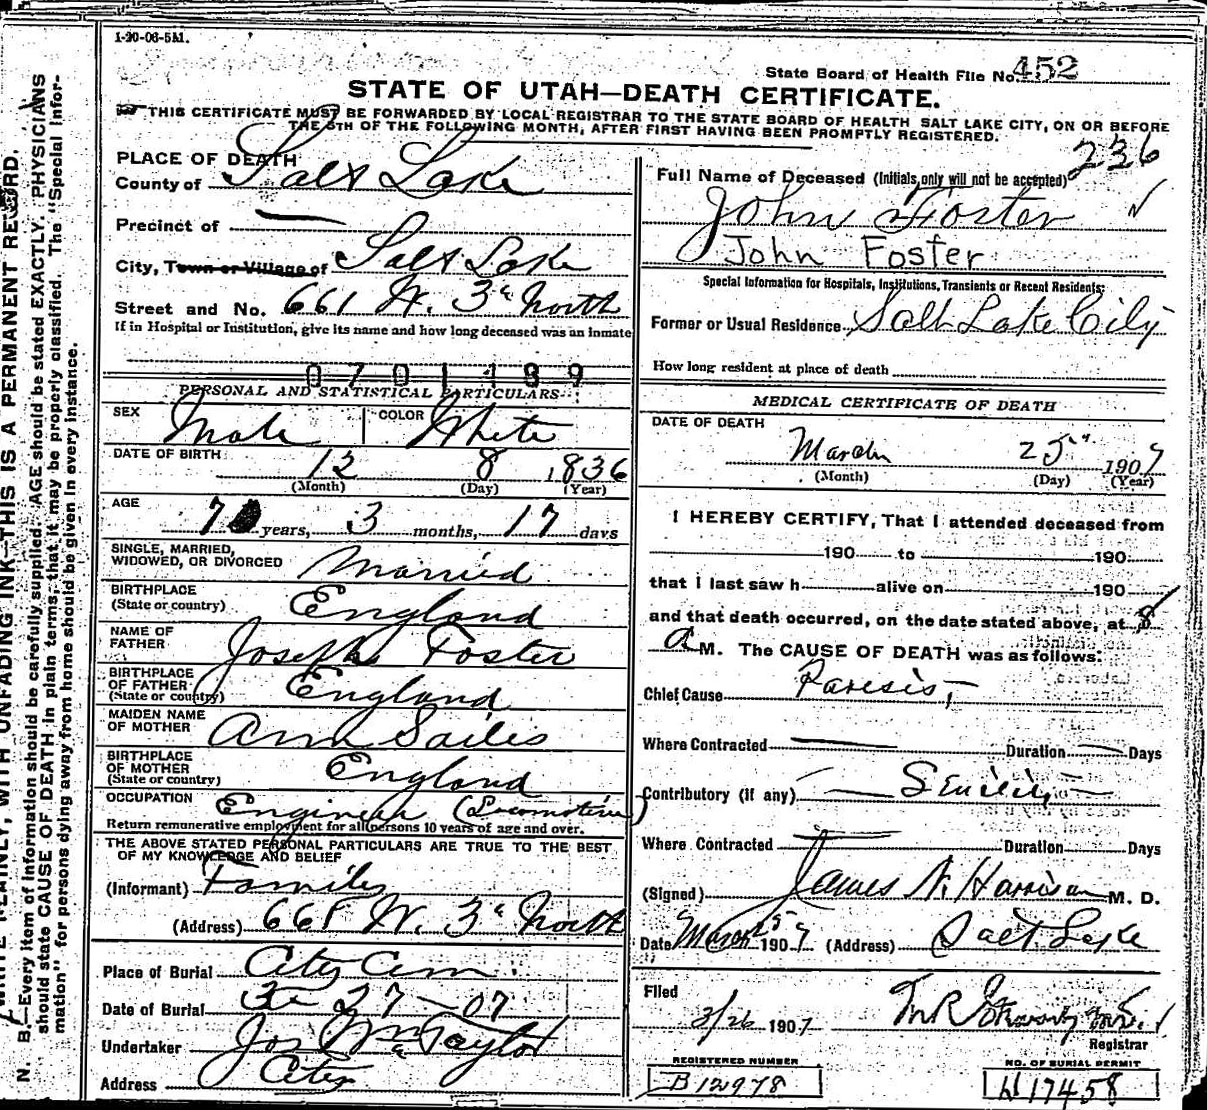 1-20-06-5M.
State Board of Health File No. 452
STATE OF UTAH—DEATH CERTIFICATE.
THIS CERTIFICATE MUST BE FORWARDED BY LOCAL REGISTRAR TO THE STATE BOARD OF HEALTH SALT LAKE CITY, ON OR BEFORE
THE 5TH OF THE FOLLOWING MONTH, AFTER FIRST HAVING BEEN PROMPTLY REGISTERED.
236
PLACE OF DEATH
County of Salt Lake
Precinct of —
City, Town or Village of Salt Lake
Street and No. 661 W. 3d North
If in Hospital or Institution, give its name and how long deceased was an inmate
0701189
PERSONAL AND STATISTICAL PARTICULARS
SEX Male COLOR White
DATE OF BIRTH 12 8 1836
(Month) (Day) (Year)
AGE 70 years, 3 months, 17 days
SINGLE, MARRIED,
WIDOWED, OR DIVORCED Married
BIRTHPLACE
(State or country) England
NAME OF
FATHER Joseph Foster
BIRTHPLACE
OF FATHER
(State or country) England
MAIDEN NAME
OF MOTHER Ann Sailes
BIRTHPLACE
OF MOTHER
(State or country) England
OCCUPATION Engineer (Locomotive)
Return remunerative employment for all persons 10 years of age and over.
THE ABOVE STATED PERSONAL PARTICULARS ARE TRUE TO THE BEST
OF MY KNOWLEDGE AND BELIEF
(Informant) Family
(Address) 661 W. 3d North
Place of Burial City Cem.
Date of Burial 3 - 27 - 07
Undertaker Jos Wm Taylor
Address City
Full Name of Deceased (Initials only will not be accepted)
John Foster
John Foster
Special Information for Hospitals, Institutions, Transients or Recent Residents:
Former or Usual Residence Salt Lake City
How long resident at place of death
MEDICAL CERTIFICATE OF DEATH
DATE OF DEATH
March 25" 1907
(Month) (Day) (Year)
I HEREBY CERTIFY, That I attended deceased from
190 to 190
that I last saw h alive on 190
and that death occurred, on the date stated above, at 8
a M. The CAUSE OF DEATH was as follows:
Chief Cause Paresis,
Where Contracted — Duration — Days
Contributory (if any) — Senility —
Where Contracted Duration Days
(Signed) James N. Harrison M. D.
Date March 25 1907 (Address) Salt Lake
Filed
3/26 1907
Registrar
REGISTERED NUMBER
B 12978
NO. OF BURIAL PERMIT
H 17458
N. B.—Every item of information should be carefully supplied. AGE should be stated EXACTLY. PHYSICIANS
should state CAUSE OF DEATH in plain terms, that it may be properly classified. The "Special Infor-
mation" for persons dying away from home should be given in every instance.
WRITE PLAINLY, WITH UNFADING INK—THIS IS A PERMANENT RECORD.